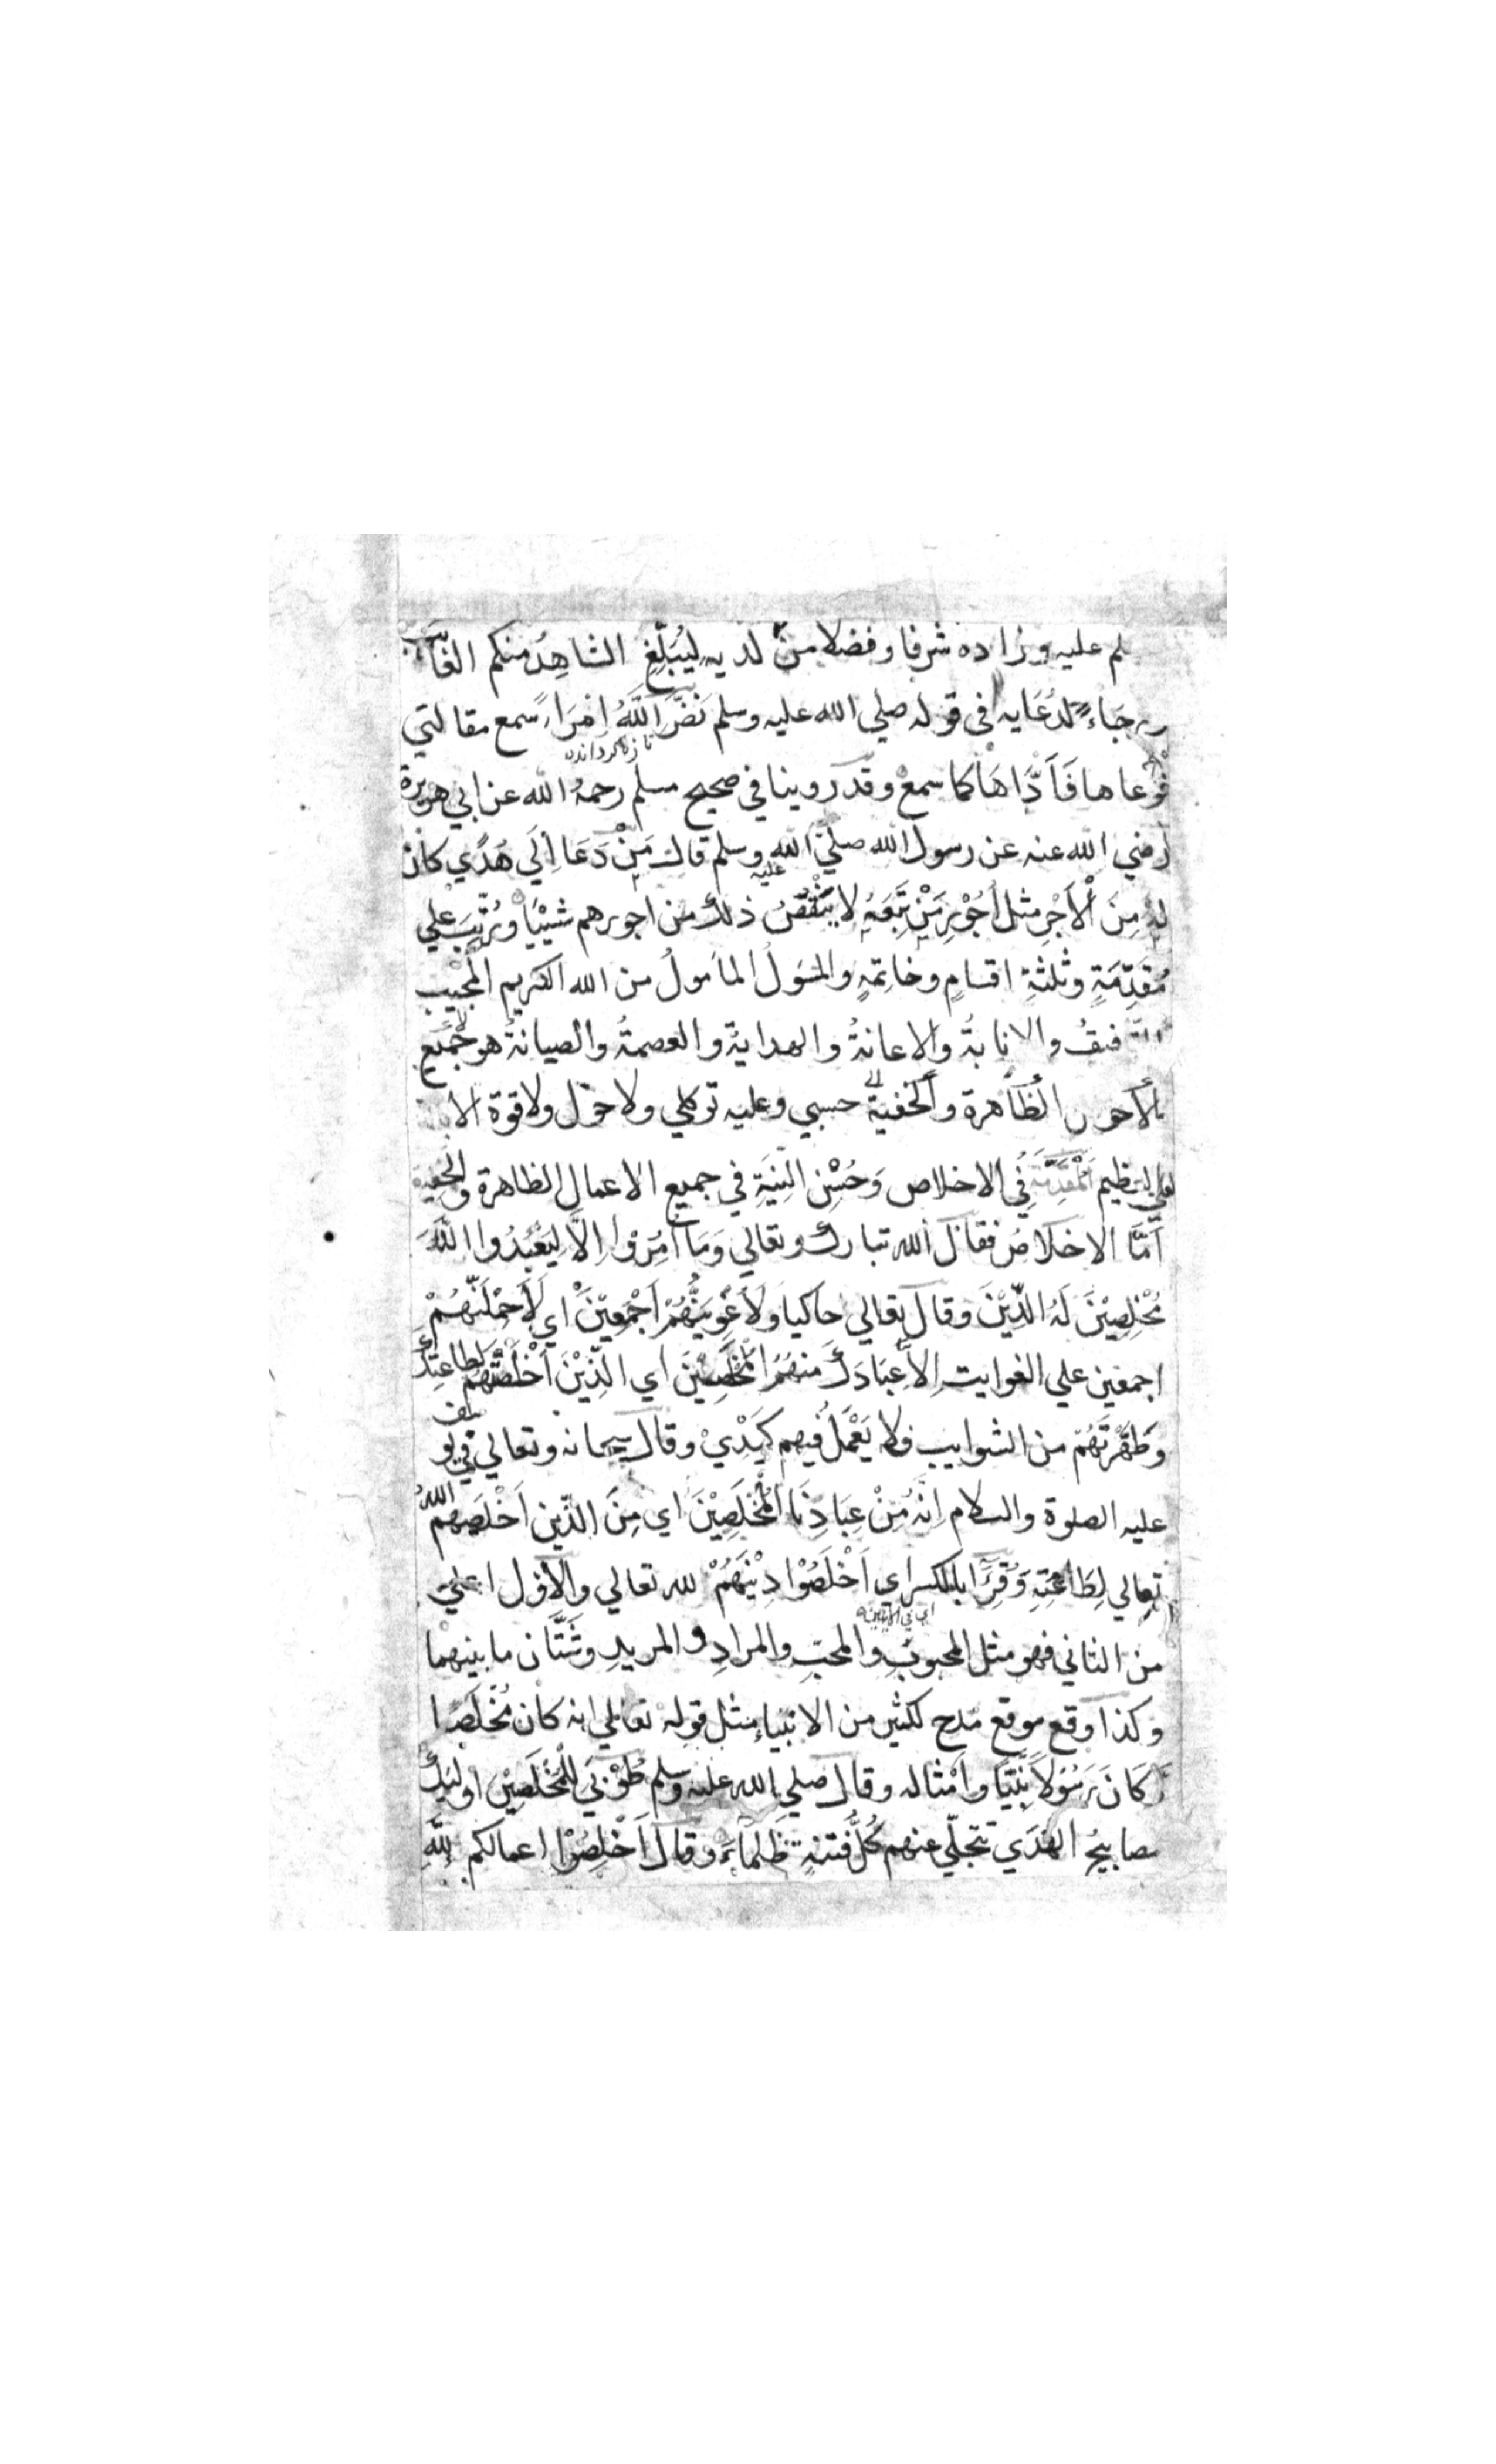 لم عليه وزاده شرفا وفضلا من لديه لِيُبَلِّغِ الشاهِدُ منكم الغائبَ
رجَاءً لدُعَايه في قوله صلي الله عليه وسلم نَضَّرَ اللّٰهُ امْرَاءً سمع مقالتي
تازه گرداند
فوَعاها فَاَدَّاهَا كما سمعْ وقدْ روينا في صحيح مسلم رحمهُ الله عن ابي هريرة
رضي الله عنه عن رسول الله صلي الله عليه وسلم قال مَنْ دَعَا اِلَي هُدًي كان
لهُ مِنَ اْلاَجْرِ مثل اُجُوْرِ مَنْ تَبِعَهُ لا يَنْقُصُ ذلك من اجورهم شيْئًا ورُتِّبَ علي
مُقدِّمَةٍ وثلثةِ اقسامٍ وخاتمةٍ والمسَولُ المامولُ من الله الكريم المجيب
التوفيقُ والانابةُ والاعانةُ والهدايةُ والعصمةُ والصيانةُ هو لجميع
الاحوال الظاهرة والخفية حسبي وعليه توكلي ولا حول ولا قوة الا
العلي العظيم المُقدَّمَة في الاخلاص وَحُسْنِ النِيَّةِ في جميع الاعمال الظاهرة والخفية
اَمَّا الاخلاصُ فقال الله تبارك وتعالي وَمَا اُمِرُوْا اِلَّا لِيَعْبُدُوا اللّٰهَ
مُخْلِصِيْنَ لَهُ الدِّيْنَ وقال تعالي حاكيا ولَاُغْوِيَنَّهُمْ اَجْمَعِيْنَ اي لَاَحْمِلَنَّهُمْ
اجمعين علي الغوايت اِلاَّ عِبَادَكَ منهمُ المُخْلَصِيْنَ اي الَّذِيْنَ اَخْلَصْتَهُمْ لطاعتِكَ
وَطَهَّرْتَهُمْ من الشوايب فلا يَعْمَلُ فيهم كَيْدِيْ وقال سبحانه وتعالي في يوسف
عليه الصلوة والسلام اِنَّهُ مِنْ عِبَادِنَا المُخْلَصِيْنَ اي مِنَ الَّذين اَخْلَصَهُم اللهُ
تعالي لِطَاعَتِهِ وَقُرِئَ بالكسر اي اَخْلَصُوْا دِيْنَهُمْ لله تعالي والاَوَّل اعليٰ
من الثاني فهو مثل المحبوبِ والمحبِ والمرادِ والمريدِ وشَتَّان ما بينهما
وكذا وقع موقع مَدح لكثير من الانبياءِ مثل قوله تعالي انه كان مُخْلَصًا
وكَانَ رَسُوْلاً نَّبِيًّا وامْثاله وقال صلي الله عليه وسلم طُوْبَي للمُخْلَصِيْن اولئِكَ
مصابيحُ الهُدَي تتجلّي عنهم كُلُّ فتنةٍ ظَلْمَاءَ وقال اَخْلِصُوْا اعمالكم لِلّٰهِ